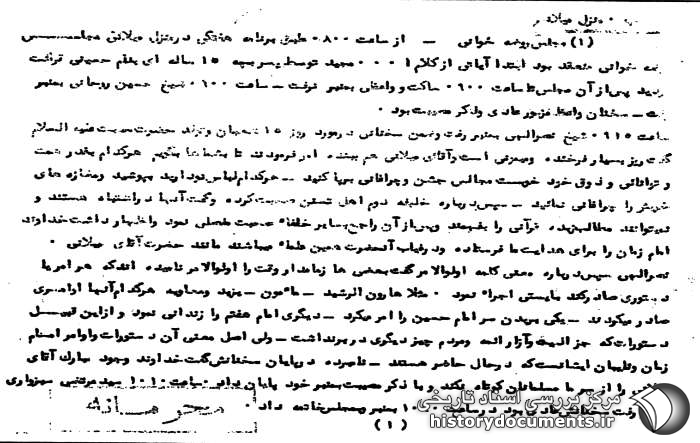 منزل میلانی
(۱) مجلس روضه خوانی – از ساعت ۰۸۰۰ طبق برنامه هفتگی در منزل میلانی مجلس
خوانی منعقد بود ابتدا آیاتی از کلام ا... مجید توسط پسر بچه ۱۵ ساله ای بنام حسینی قرائت
گردید پس از آن مجلس تا ساعت ۰۹۰۰ ساکت و واعظی بمنبر نرفت – ساعت ۰۹۰۰ شیخ حسین روحانی بمنبر
رفت – سخنان واعظ مزبور عادی و ذکر مصیبت بود.
ساعت ۰۹۱۵ شیخ نصرالهی بمنبر رفت و ضمن سخنانی در مورد روز ۱۵ شعبان و تولد حضرت حجت علیه السلام
گفت روز بسیار فرخنده و معززی است و آقای میلانی هم ببنده امر فرمودند تا بشماها بگویم هر کدام بقدر همت
و توانائی و ذوق خود خوبست مجالس جشن و چراغانی برپا کنید – هر کدام لباس نو دارید بپوشید و مغازه های
خویش را چراغانی نمائید – سپس درباره خلیفه دوم اهل تسنن صحبت کرده و گفت آنها در اشتباه هستند و
نمیتوانند مطالب قرآنی را بفهمند و پس از آن راجع بسایر خلفاء صحبت مفصلی نمود و اظهار داشت خداوند
امام زمان را برای هدایت ما فرستاده و در غیاب آنحضرت همین علماء میباشند مانند حضرت آقای میلانی.
نصرالهی سپس درباره معنی کلمه اولوالامر گفت بعضی ها زمامدار وقت را اولوالامر نامیده اند که هر امر یا
دستوری صادر کند بایستی اجراء نمود. مثلا هارون الرشید – مامون – یزید و معاویه هر کدام آنها اوامری
صادر میکردند – یکی بریدن سر امام حسین را امر میکرد – دیگری امام هفتم را زندانی نمود و از این قبیل
دستورات که جز اذیت و آزار ائمه و مردم چیز دیگری در بر نداشت – ولی اصل معنی آن دستورات و اوامر امام
زمان و نایبان ایشانست که در حال حاضر هستند – نامبرده در پایان سخنانش گفت خداوند وجود مبارک آقای
را از سر ما مسلمانان کوتاه نکند و با ذکر مصیبت بمنبر خود پایان داد. ساعت ۱۰۱۰ سید مرتضی سبزواری
رفت سخنانش عادی بود در ساعت بمنبر و مجلس خاتمه داد.
محرمانه
(۱)
مرکز بررسی اسناد تاریخی
historydocuments.ir